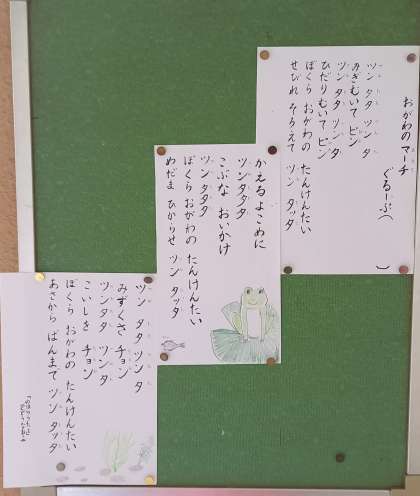 おがわのマーチ
ぐるーぷ(　　　)
ツン タタ ツン タ
みぎむいて ピン
ツン タタ ツンタ
ひだり むいて ピン
ぼくら おがわの たんけんたい
せびれ そろえて ツン タッタ
かえるよこめに
ツンタタタ
こぶな おいかけ
ツン タタタ
ぼくら おがわの たんけんたい
めだま ひからせ ツン タッタ
ツン タタ ツンタ
みずくさ チョン
ツンタタ ツンタ
こいしを チョン
ぼくら おがわの たんけんたい
あさから ばんまで ツン タッタ